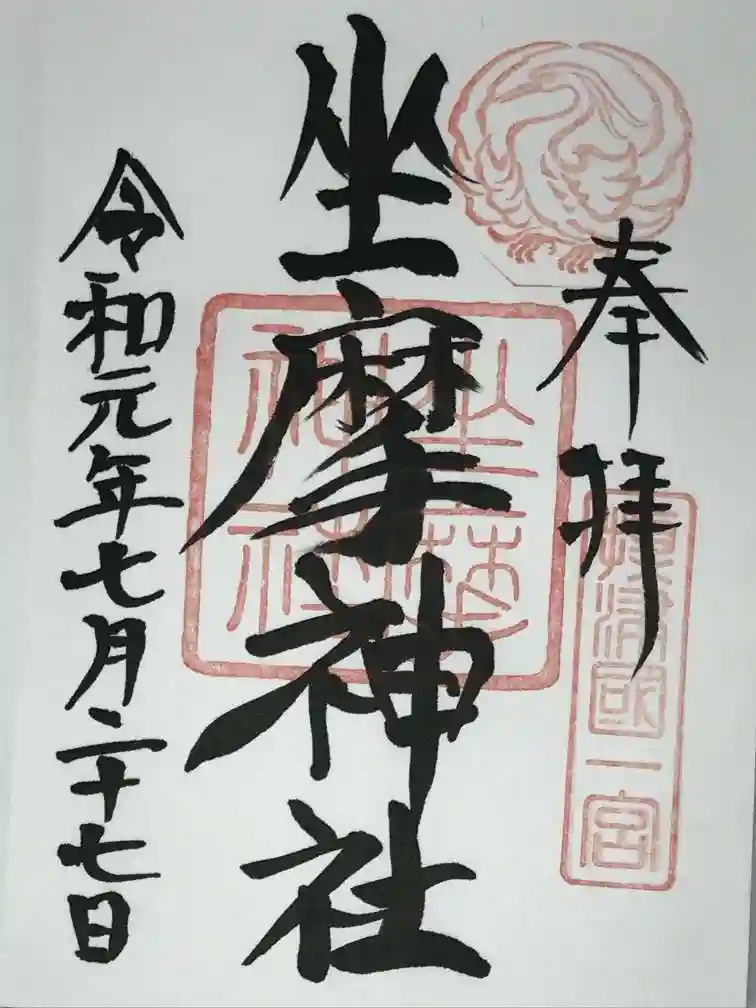 奉拝
摂津國一宮
坐摩神社
坐摩
神社
令和元年七月二十七日